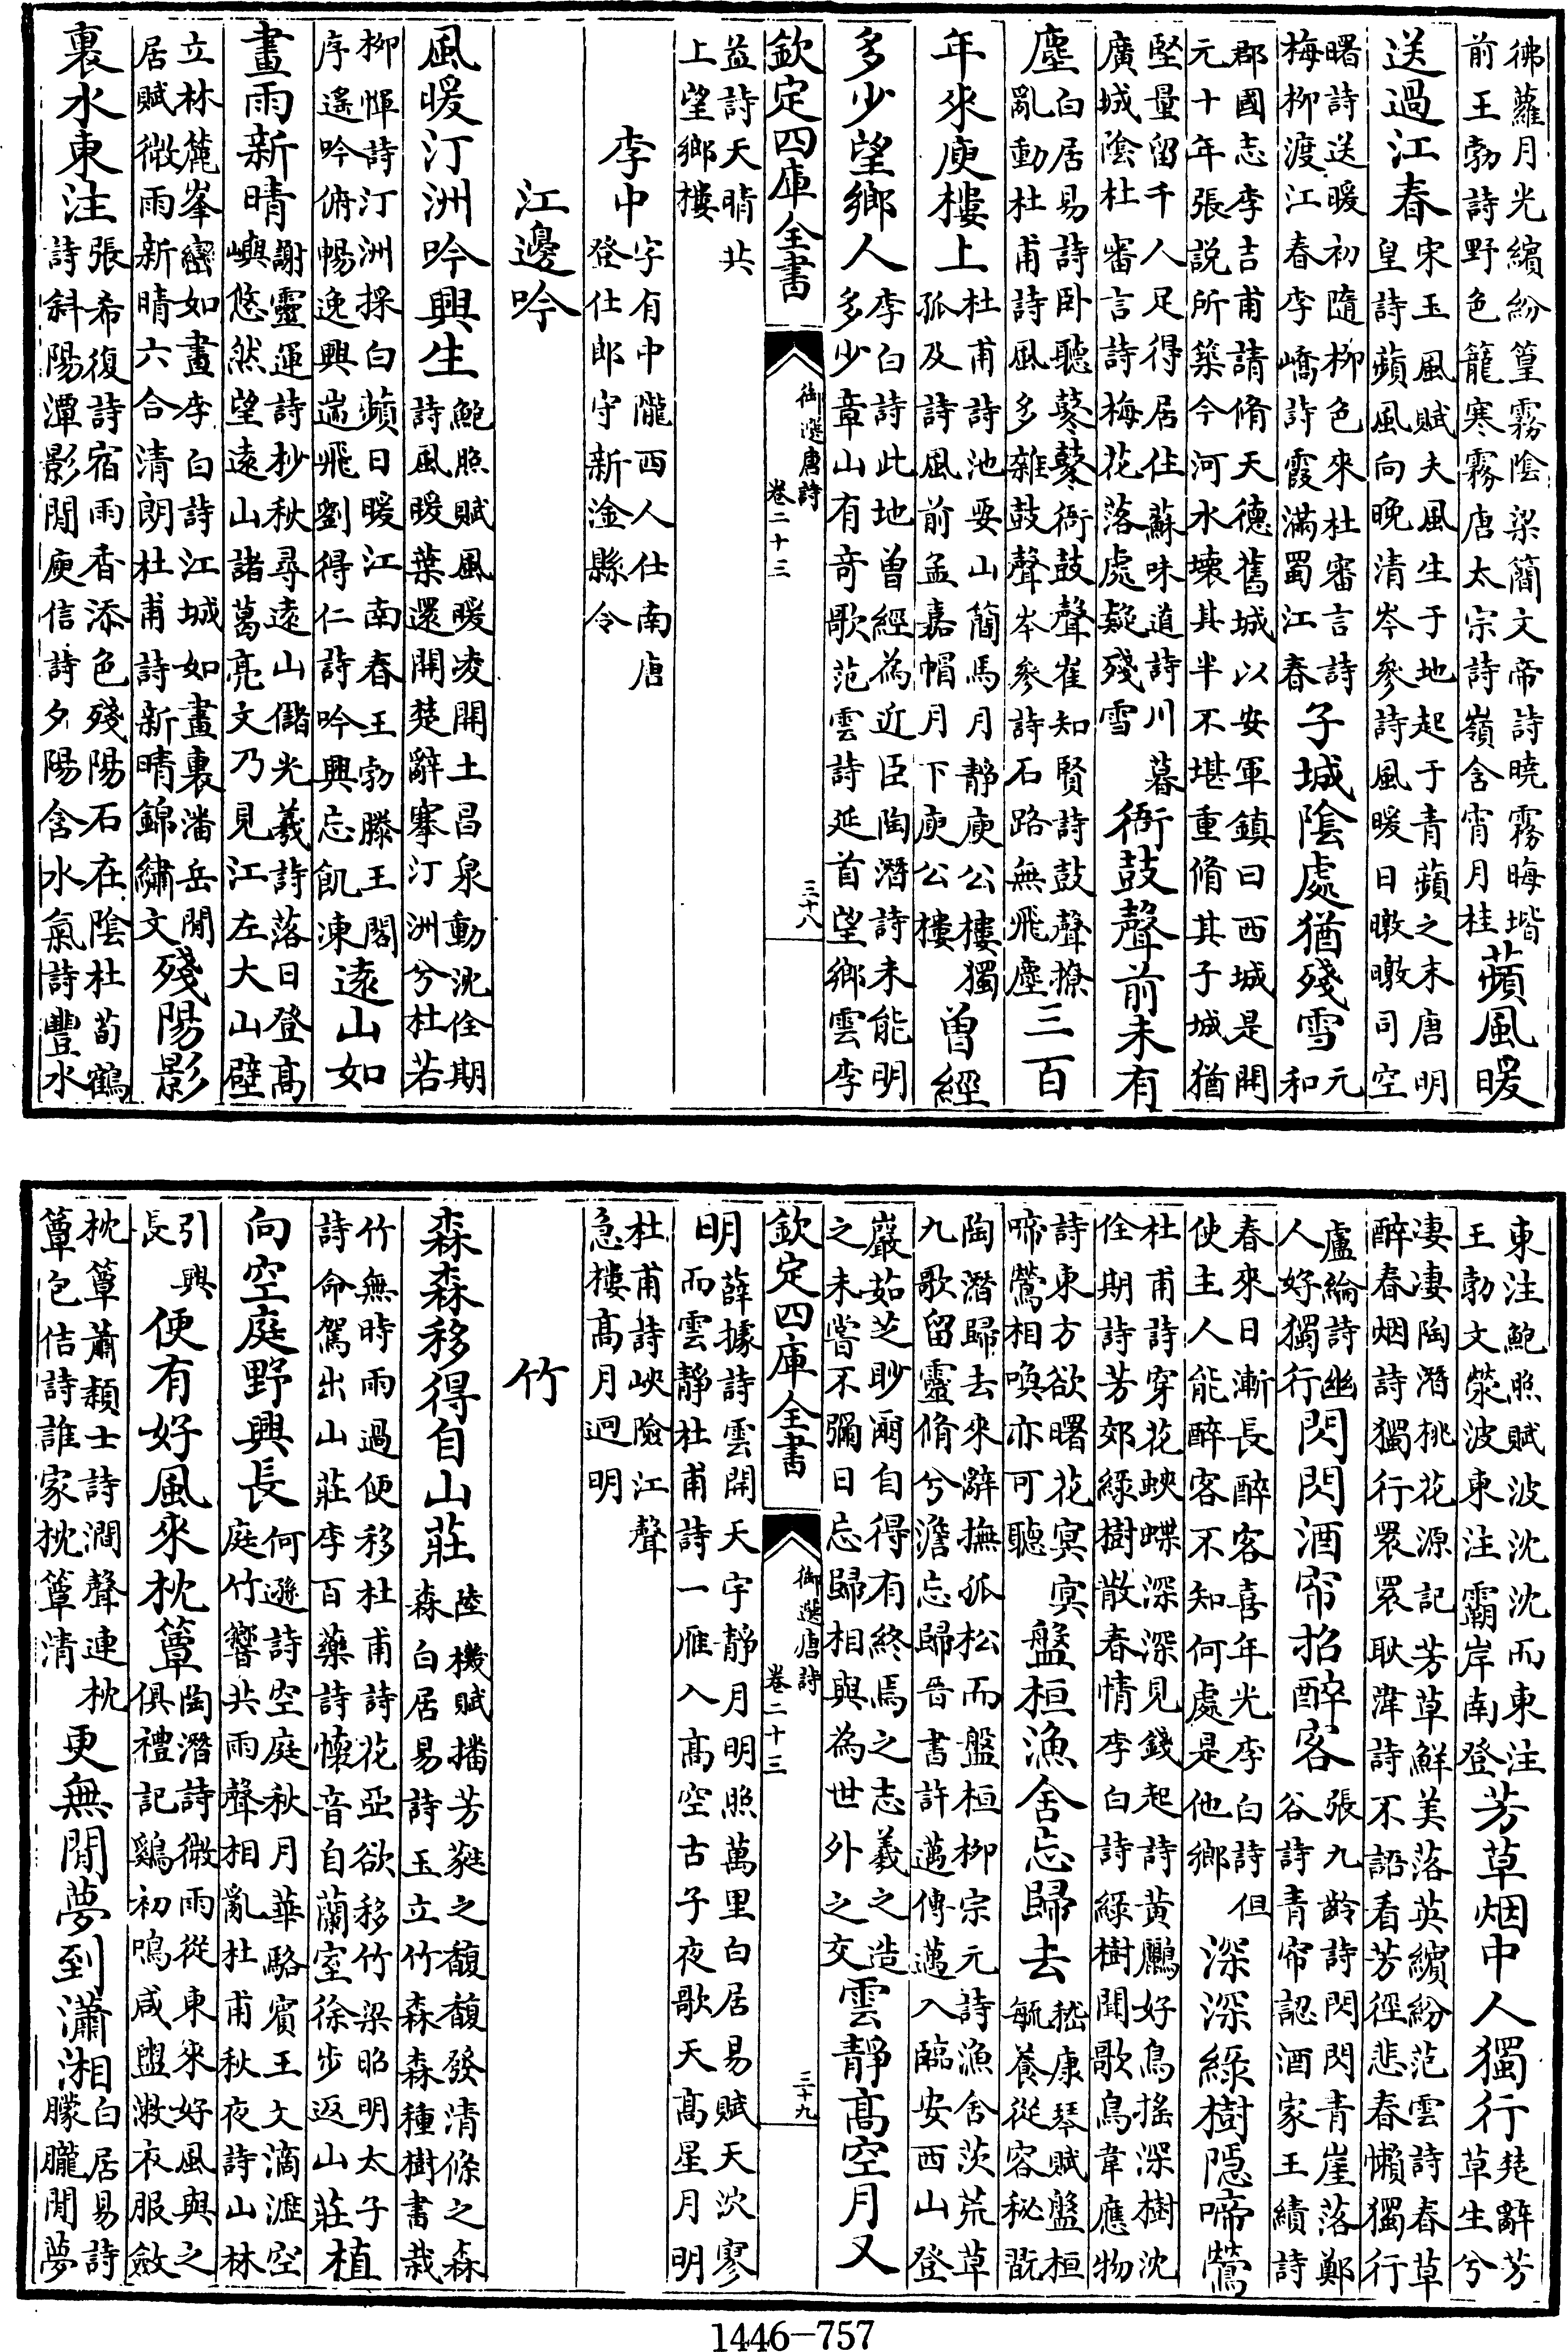 彿蘿月光繽紛篁霧陰梁簡文帝詩曉霧晦堦
前王勃詩野色籠寒霧唐太宗詩嶺含宵月桂
蘋風暖
送過江春
宋玉風賦夫風生于地起于青蘋之末唐明
皇詩蘋風向晚清岑參詩風暖日暾暾司空
曙詩送暖初隨柳色來杜審言詩
梅柳渡江春李嶠詩霞滿蜀江春
子城陰處猶殘雪
元
和
郡國志李吉甫請脩天德舊城以安軍鎮曰西城是開
元十年張説所築今河水壞其半不堪重脩其子城猶
堅量留千人足得居住蘇味道詩川暮
廣城陰杜審言詩梅花落處疑殘雪
衙鼓聲前未有
塵
白居易詩卧聽鼕鼕衙鼓聲崔知賢詩鼓聲撩
亂動杜甫詩風多雜鼓聲岑參詩石路無飛塵
三百
年來庾樓上
杜甫詩池要山簡馬月靜庾公樓獨
孤及詩風前孟嘉帽月下庾公樓
曾經
多少望鄉人
李白詩此地曾經為近臣陶潛詩未能明
多少章山有奇歌范雲詩延首望鄉雲李
欽定四庫全書
御選唐詩
卷二十三
三十八
益詩天晴共
上望鄉樓
李中
字有中隴西人仕南唐
登仕郎守新淦縣令
江邊吟
風暖汀洲吟興生
鮑照賦風暖凌開土昌泉動沈佺期
詩風暖葉還開楚辭搴汀洲兮杜若
柳惲詩汀洲採白蘋日暖江南春王勃滕王閣
序遙吟俯暢逸興遄飛劉得仁詩吟興忘飢凍
遠山如
畫雨新晴
謝靈運詩杪秋尋遠山儲光羲詩落日登高
嶼悠然望遠山諸葛亮文乃見江左大山壁
立林麓峯巒如畫李白詩江城如畫裏潘岳閒
居賦微雨新晴六合清朗杜甫詩新晴錦繡文
殘陽影
裏水東注
張希復詩宿雨香添色殘陽石在陰杜荀鶴
詩斜陽潭影閒庾信詩夕陽含水氣詩豐水
東注鮑照賦波沈沈而東注
王勃文滎波東注霸岸南登
芳草烟中人獨行
楚辭芳
草生兮
凄凄陶潛桃花源記芳草鮮美落英繽紛范雲詩春草
醉春烟詩獨行睘睘耿湋詩不語看芳徑悲春懶獨行
盧綸詩幽
人好獨行
閃閃酒帘招醉客
張九齡詩閃閃青崖落鄭
谷詩青帘認酒家王績詩
春來日漸長醉客喜年光李白詩但
使主人能醉客不知何處是他鄉
深深綠樹隱啼鶯
杜甫詩穿花蛺蝶深深見錢起詩黃鸝好鳥搖深樹沈
佺期詩芳郊綠樹散春情李白詩綠樹聞歌鳥韋應物
詩東方欲曙花冥冥
啼鶯相喚亦可聽
盤桓漁舍忘歸去
嵇康琴賦盤桓
毓養從容秘翫
陶潛歸去來辭撫孤松而盤桓柳宗元詩漁舍茨荒草
九歌留靈脩兮澹忘歸晉書許邁傳邁入臨安西山登
巖茹芝眇爾自得有終焉之志羲之造
之未嘗不彌日忘歸相與為世外之交
雲靜高空月又
欽定四庫全書
御選唐詩
卷二十三
三十九
明
薛據詩雲開天宇靜月明照萬里白居易賦天泬寥
而雲靜杜甫詩一雁入高空古子夜歌天高星月明
杜甫詩峽險江聲
急樓高月迥明
竹
森森移得自山莊
陸機賦播芳蕤之馥馥發清條之森
森白居易詩玉立竹森森種樹書栽
竹無時雨過便移杜甫詩花亞欲移竹梁昭明太子
詩命駕出山莊李百藥詩懷音自蘭室徐步返山莊
植
向空庭野興長
何遜詩空庭秋月華駱賓王文滴瀝空
庭竹響共雨聲相亂杜甫秋夜詩山林
引興
長
便有好風來枕簟
陶潛詩微雨從東來好風與之
俱禮記鷄初鳴咸盥漱衣服斂
枕簟蕭穎士詩澗聲連枕
簟包佶詩誰家枕簟清
更無閒夢到瀟湘
白居易詩
朦朧閒夢
1446—757